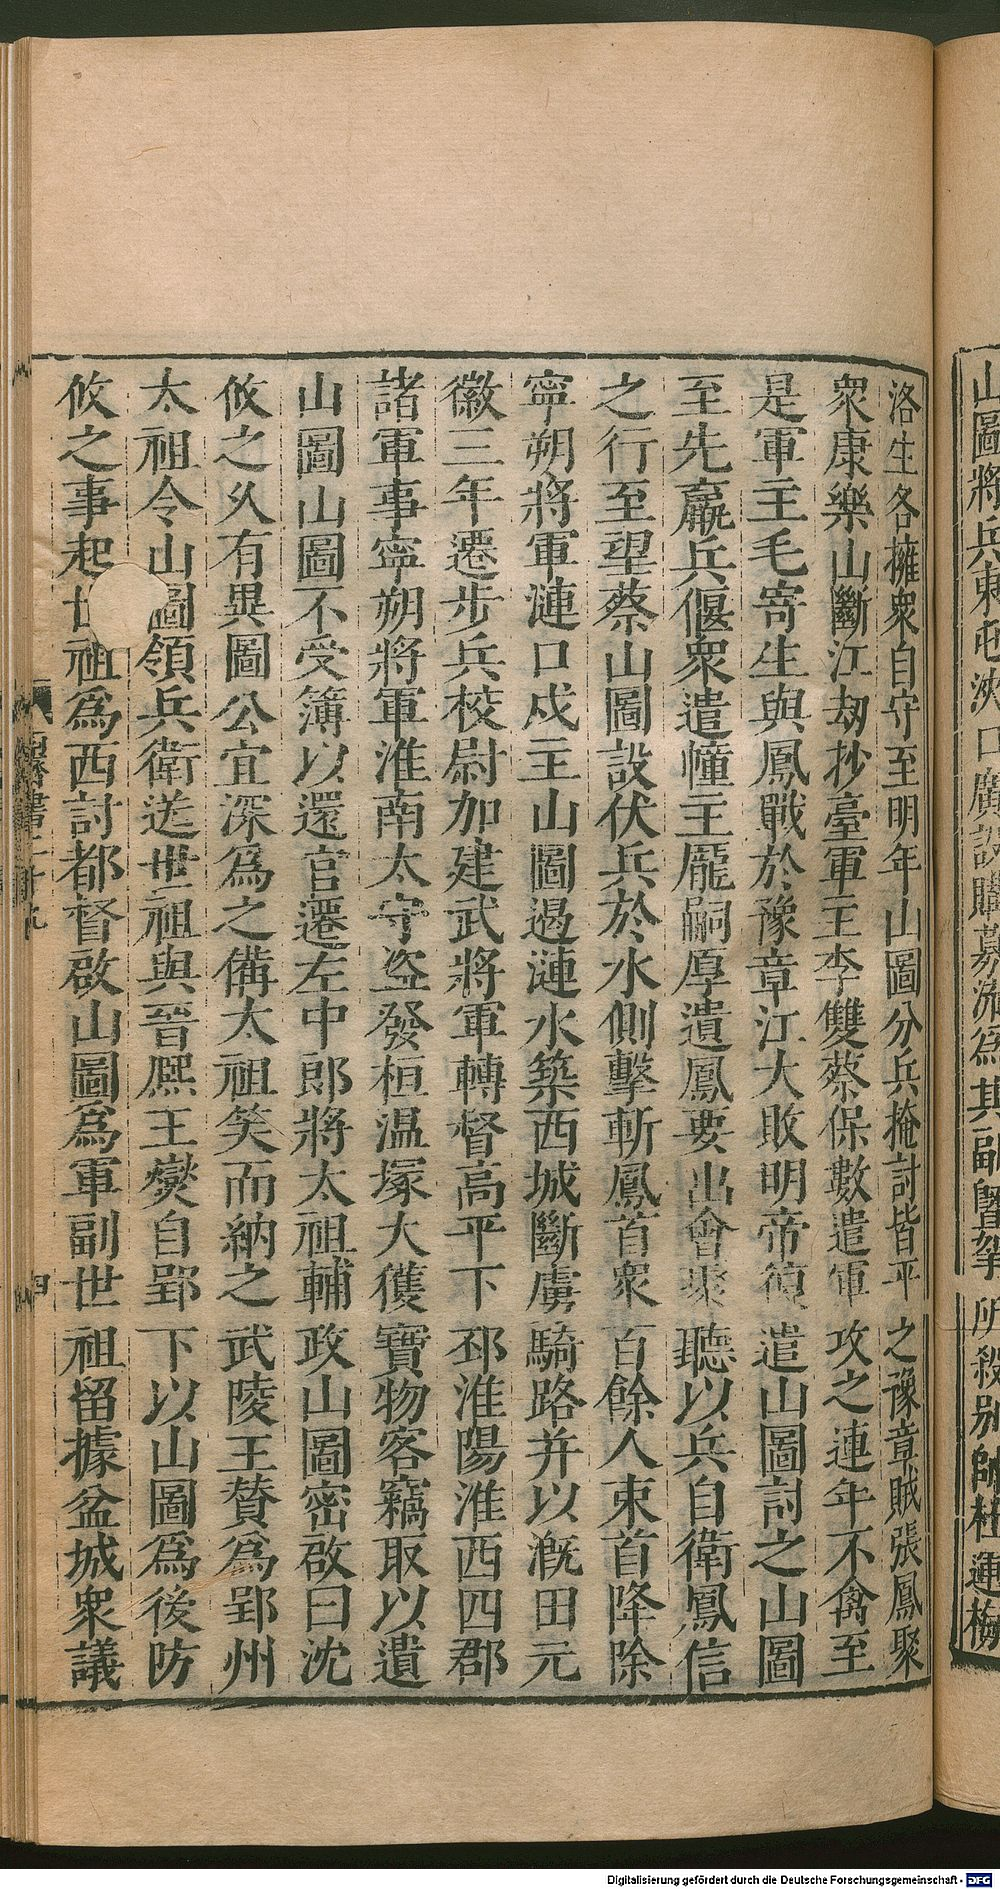 山圖將兵東屯浹口廣設購募流爲其副曁拏所殺別帥杜連梅
洛生各擁衆自守至明年山圖分兵掩討皆平之豫章賊張鳳聚
衆康樂山斷江劫抄臺軍主李雙蔡保數遣軍攻之連年不禽至
是軍主毛寄生與鳳戰於豫章江大敗明帝復遣山圖討之山圖
至先羸兵偃衆遣幢主龐嗣厚遺鳳要出會聚聽以兵自衛鳳信
之行至望蔡山圖設伏兵於水側擊斬鳳首衆百餘人束首降除
寧朔將軍漣口戍主山圖遏漣水築西城斷虜騎路并以溉田元
徽三年遷步兵校尉加建武將軍轉督高平下邳淮陽淮西四郡
諸軍事寧朔將軍淮南太守盜發桓温塚大獲寶物客竊取以遺
山圖山圖不受簿以還官遷左中郎將太祖輔政山圖密啟曰沈
攸之久有異圖公宜深爲之備太祖笑而納之武陵王贊爲郢州
太祖令山圖領兵衛送世祖與晉熙王燮自郢下以山圖爲後防
攸之事起世祖爲西討都督啟山圖爲軍副世祖留據盆城衆議
書二十九
四
Digitalisierung gefördert durch die Deutsche Forschungsgemeinschaft - DFG